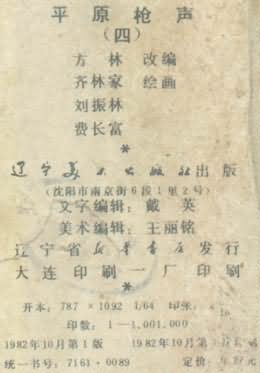 平原枪声
(四)
方林 改编
齐林家 绘画
刘振林
费长富
*
辽宁美术出版社出版
(沈阳市南京街6段1里2号)
文字编辑：戴英
美术编辑：王丽铭
辽宁省新华书店发行
大连印刷一厂印刷
*
开本：787×1092 1/64 印张：
印数：1—1,001,000
1982年10月第1版 1982年10月第
统一书号：7161·0089 定价：